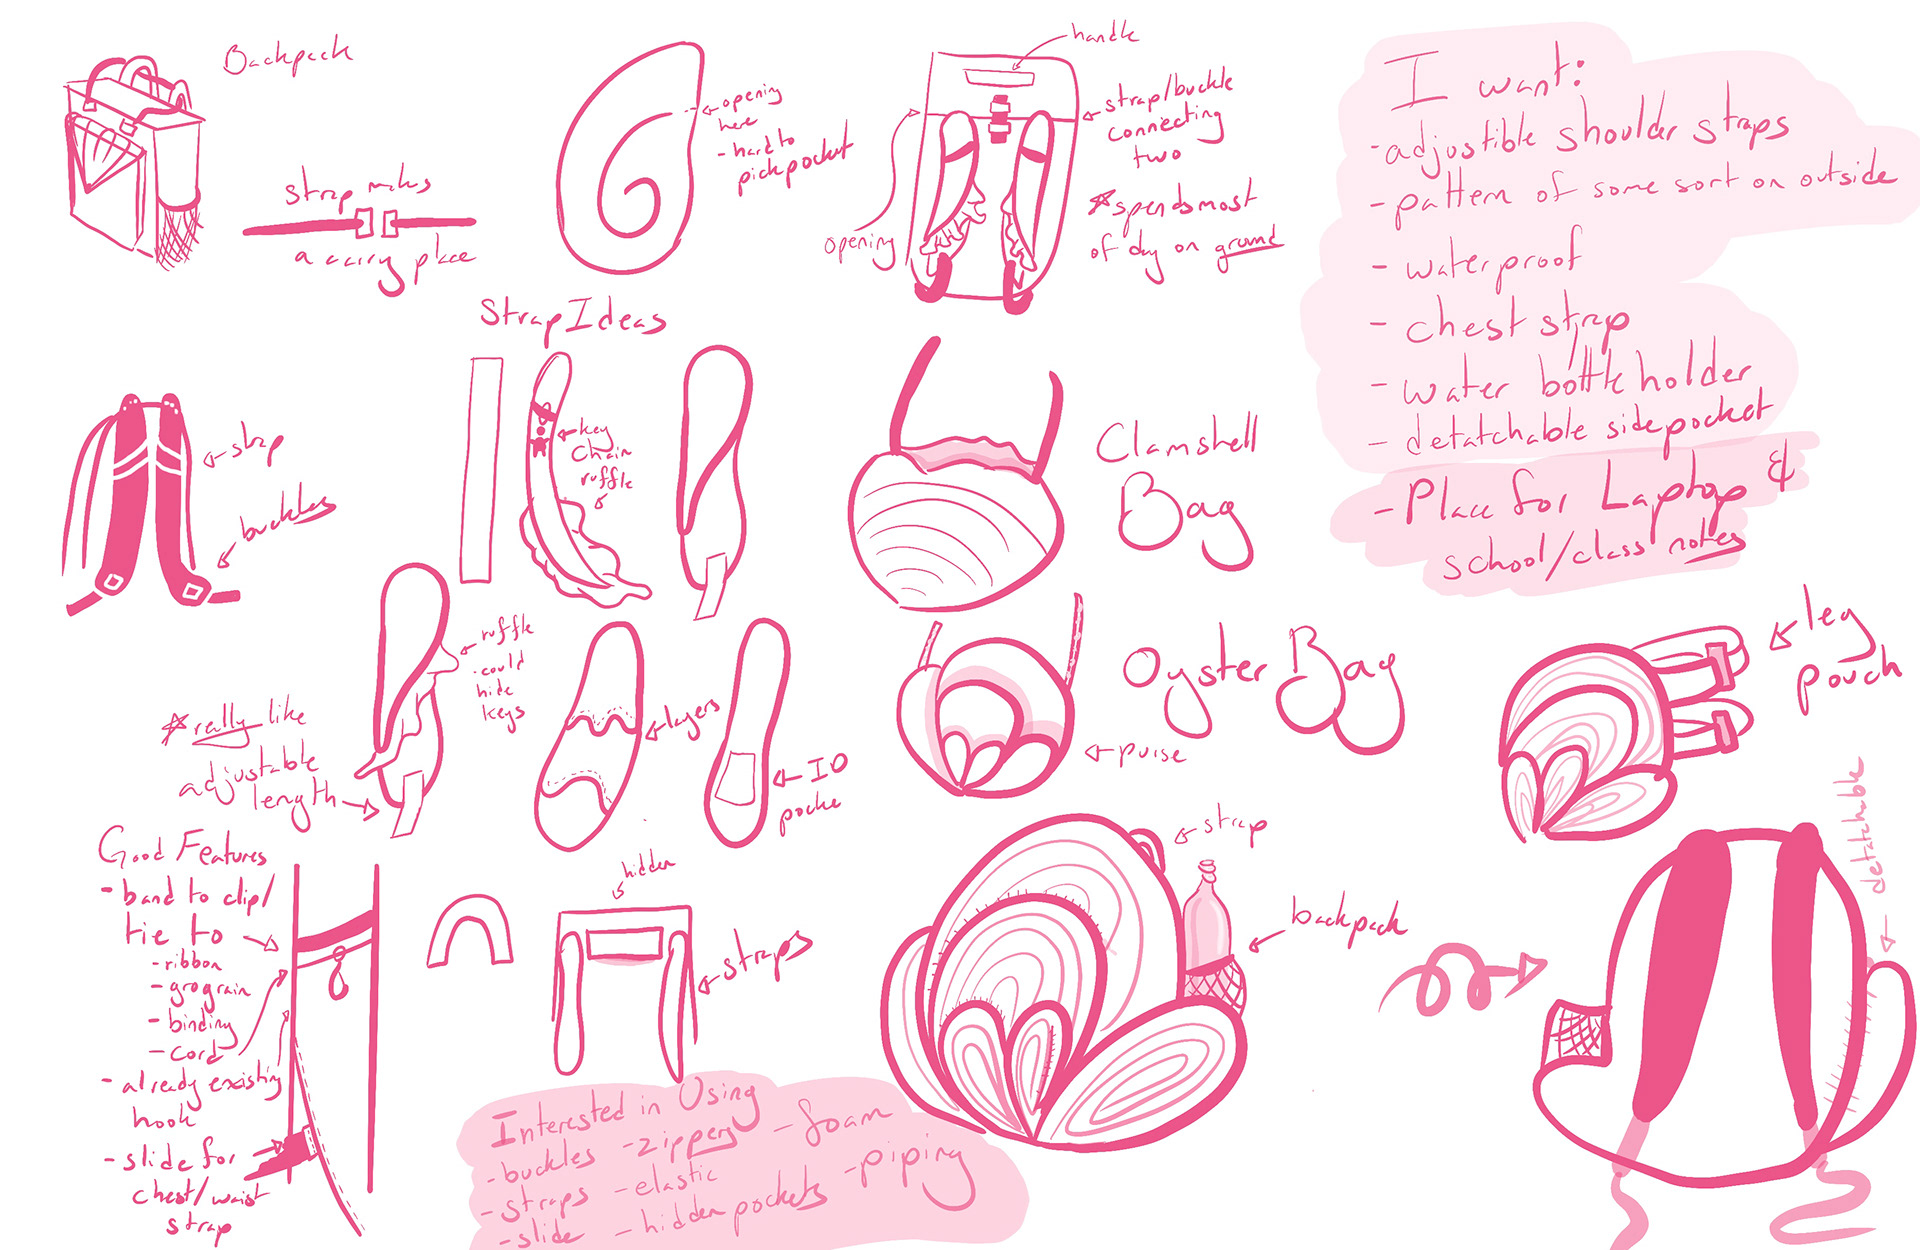 Backpack
strap makes
a carry place
opening
here
- hard to
pickpocket
handle
strap/buckle
connecting
two
opening
*spends most
of day on ground
I want:
- adjustible shoulder straps
- pattern of some sort on outside
- waterproof
- chest strap
- water bottle holder
- detatchable side pocket
- Place for Laptop &
school/class notes
Strap Ideas
strap
buckles
key
chain
ruffle
Clamshell
Bag
ruffle
- could
hide
keys
*really like
adjustable
length
layers
ID
pocke
Oyster Bag
purse
leg
pouch
Good Features
- band to clip/
tie to
- ribbon
- grograin
- binding
- cord
- already existing
hook
- slide for
chest/waist
strap
hidden
straps
strap
backpack
detatchable
Interested in Using
- buckles - zippers - foam
- straps - elastic - piping
- slide - hidden pockets